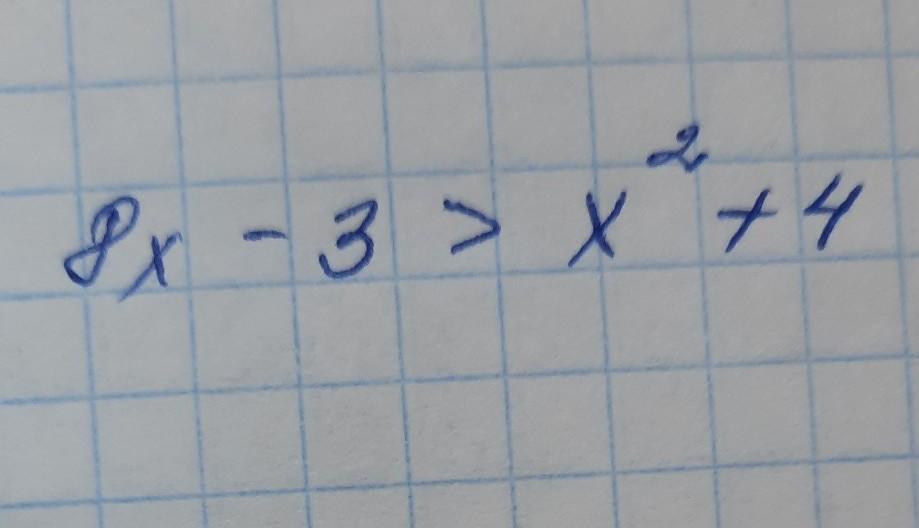 8x - 3 > x² + 4